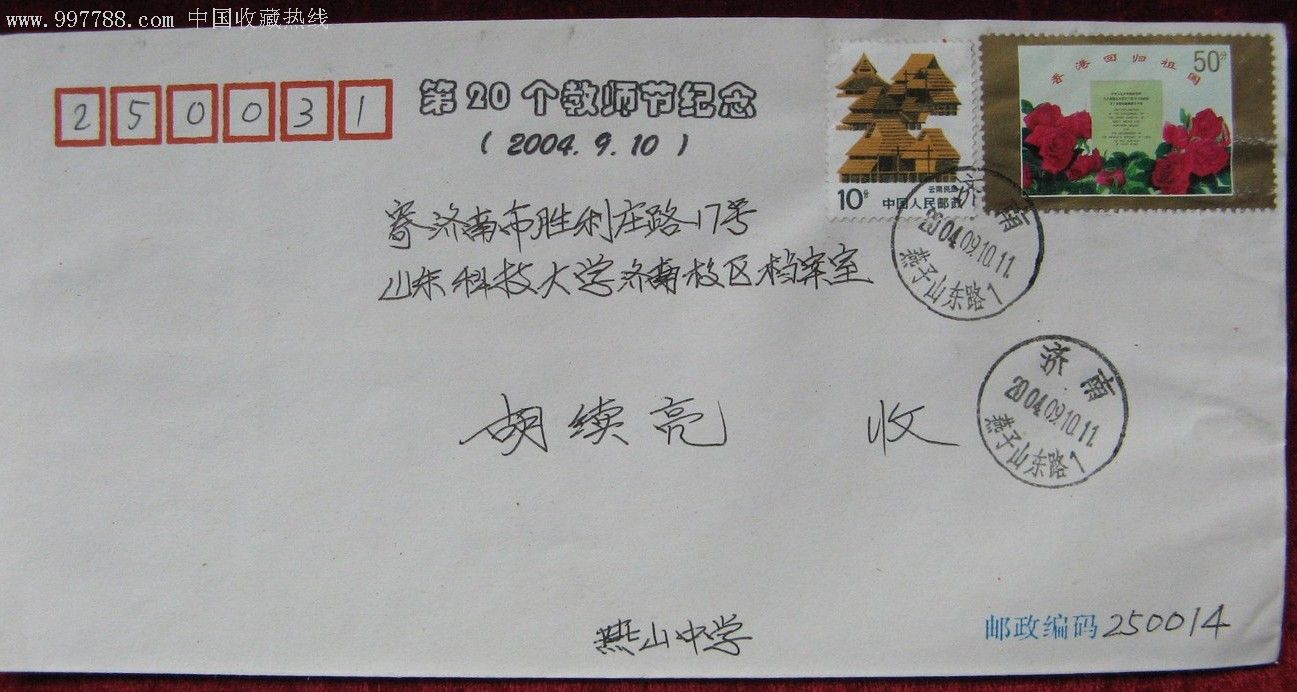 www.997788.com 中国收藏热线
250031
第20个教师节纪念
(2004.9.10)
云南民居
10分
中国人民邮政
香港回归祖国
50分
寄济南市胜利庄路17号
山东科技大学济南校区档案室
济南
2004.09.10.11.
燕子山东路1
胡续亮 收
济南
2004.09.10.11.
燕子山东路1
燕山中学
邮政编码250014